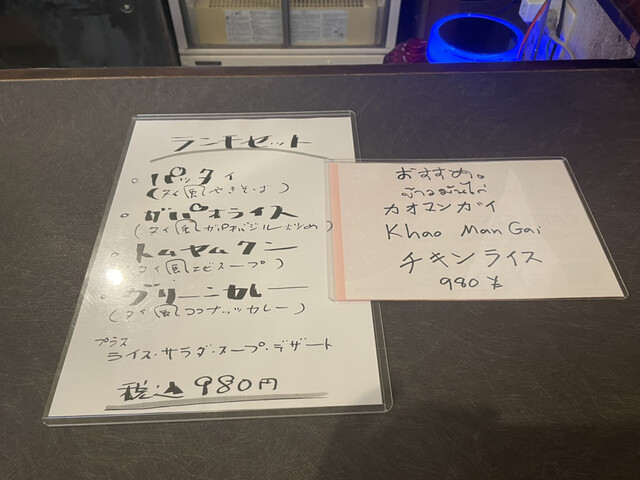 ランチセット
。パッタイ
(タイ風やきそば)
。ガパオライス
(タイ風ガパオバジル炒め)
。トムヤムクン
(タイ風エビスープ)
。グリーンカレー
(タイ風ココナッツカレー)
プラス
ライス・サラダ・スープ・デザート
税込980円
おすすめ。
ข้าวมันไก่
カオマンガイ
Khao Man Gai
チキンライス
980¥